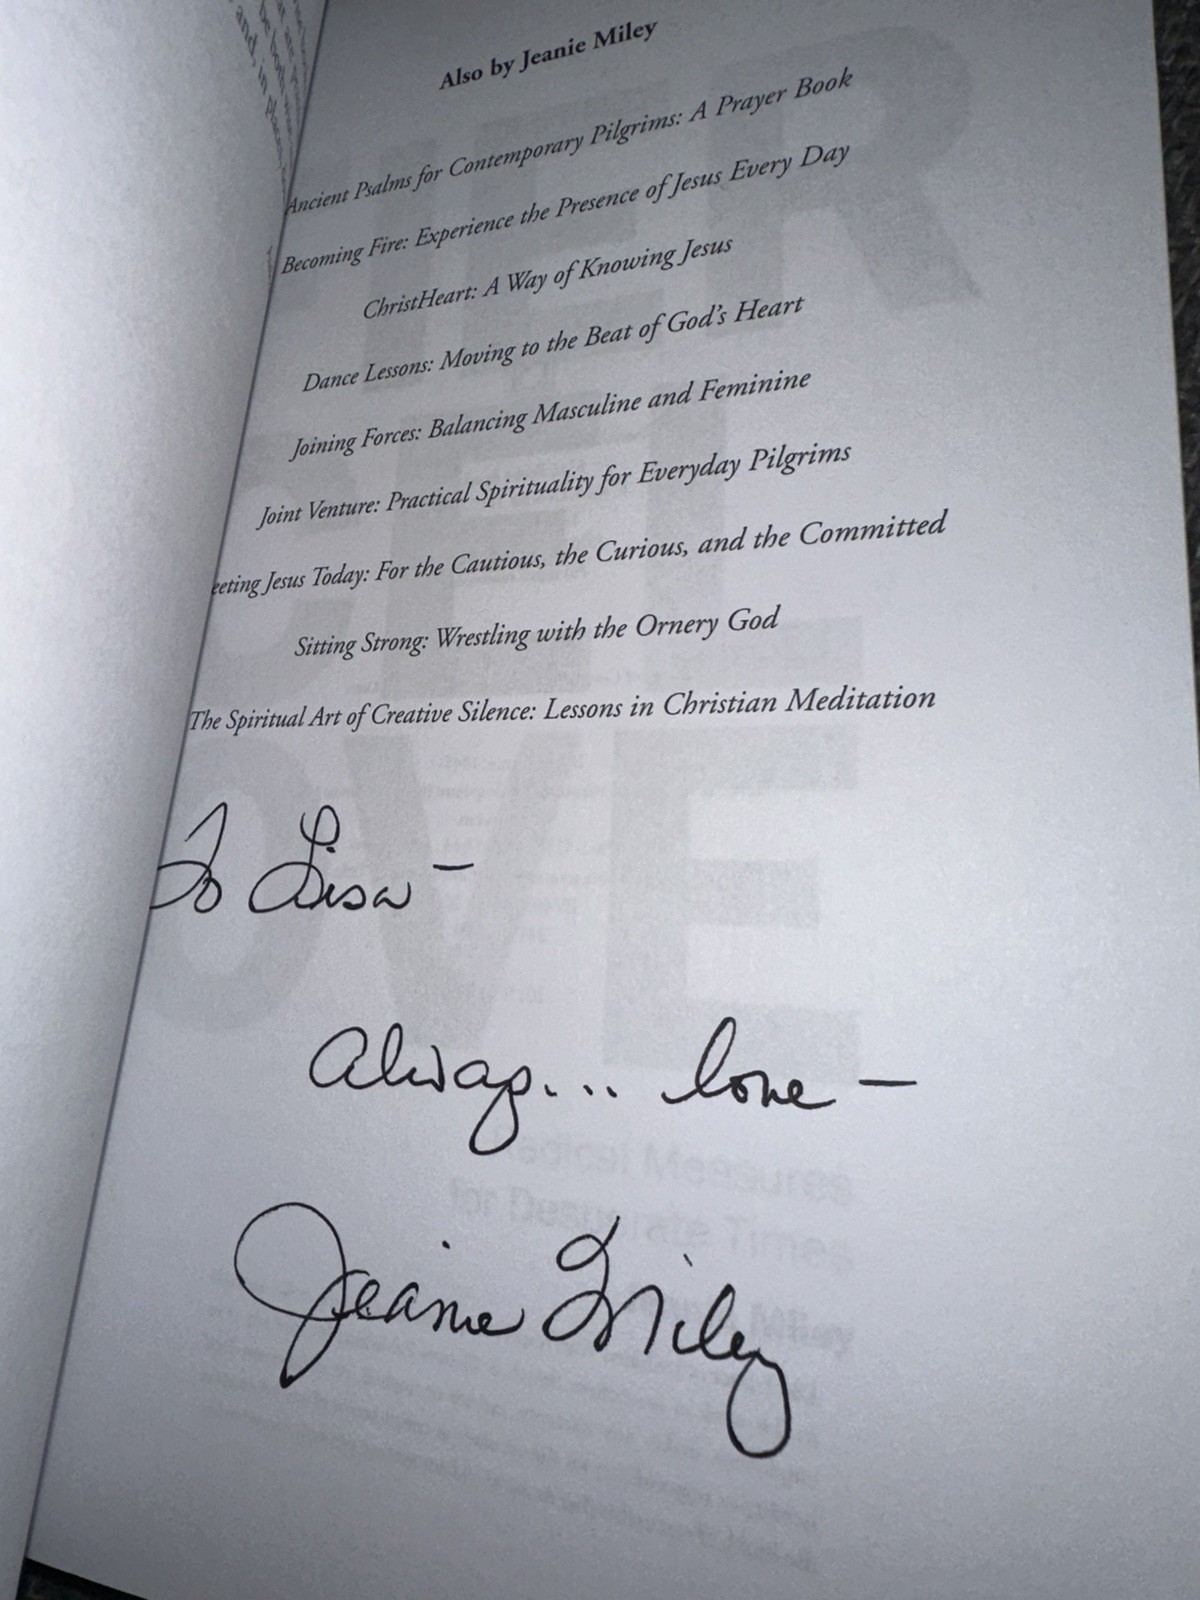 Also by Jeanie Miley
Ancient Psalms for Contemporary Pilgrims: A Prayer Book
Becoming Fire: Experience the Presence of Jesus Every Day
ChristHeart: A Way of Knowing Jesus
Dance Lessons: Moving to the Beat of God's Heart
Joining Forces: Balancing Masculine and Feminine
Joint Venture: Practical Spirituality for Everyday Pilgrims
eeting Jesus Today: For the Cautious, the Curious, and the Committed
Sitting Strong: Wrestling with the Ornery God
The Spiritual Art of Creative Silence: Lessons in Christian Meditation
To Lisa –
Always... love –
Jeanie Miley